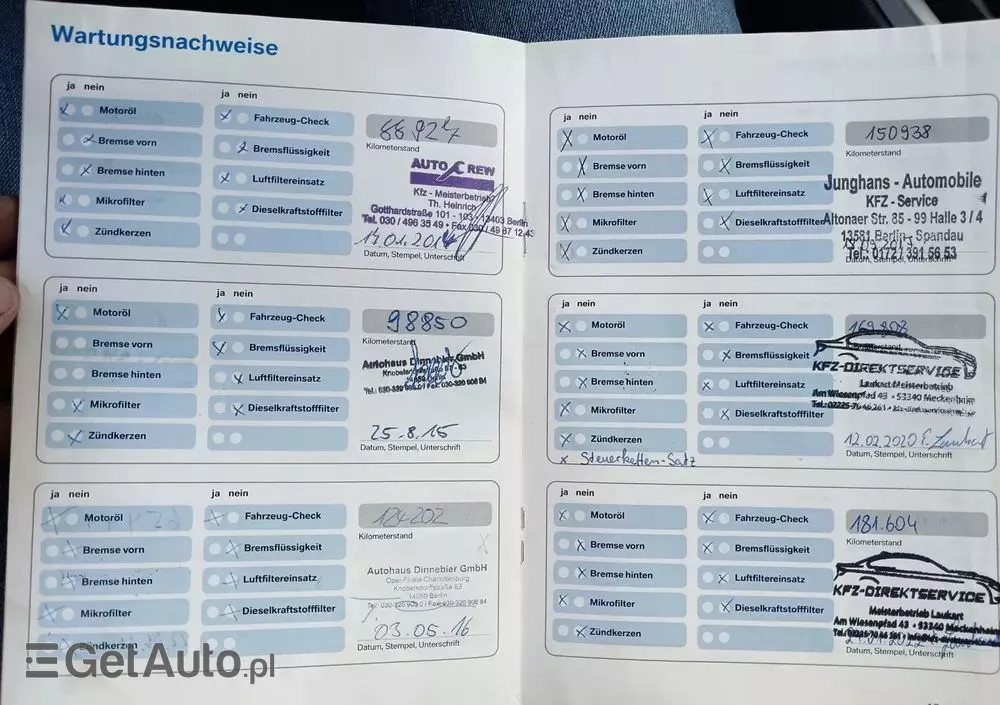 Wartungsnachweise
ja nein
ja nein
Motoröl
Fahrzeug-Check
Bremse vorn
Bremsflüssigkeit
Bremse hinten
Luftfiltereinsatz
Mikrofilter
Dieselkraftstofffilter
Zündkerzen
Kilometerstand
AUTO CREW
Kfz - Meisterbetrieb
Th. Heinrich
Gotthardstraße 101 - 103 · 13403 Berlin
Tel. 030 / 496 35 49 · Fax 030 / 49 87 12 43
17.01.2014
Datum, Stempel, Unterschrift
ja nein
ja nein
Motoröl
Fahrzeug-Check
Bremse vorn
Bremsflüssigkeit
Bremse hinten
Luftfiltereinsatz
Mikrofilter
Dieselkraftstofffilter
Zündkerzen
98850
Kilometerstand
Autohaus Dinnebier GmbH
25.8.15
Datum, Stempel, Unterschrift
ja nein
ja nein
Motoröl
Fahrzeug-Check
Bremse vorn
Bremsflüssigkeit
Bremse hinten
Luftfiltereinsatz
Mikrofilter
Dieselkraftstofffilter
Zündkerzen
124202
Kilometerstand
Autohaus Dinnebier GmbH
Opel-Filiale Charlottenburg
Knobelsdorffstraße 63
14059 Berlin
03.05.16
Datum, Stempel, Unterschrift
ja nein
ja nein
Motoröl
Fahrzeug-Check
Bremse vorn
Bremsflüssigkeit
Bremse hinten
Luftfiltereinsatz
Mikrofilter
Dieselkraftstofffilter
Zündkerzen
150938
Kilometerstand
Junghans - Automobile
KFZ - Service
Altonaer Str. 85 - 99 Halle 3 / 4
13581 Berlin - Spandau
Tel.: 0172 / 391 56 53
Datum, Stempel, Unterschrift
ja nein
ja nein
Motoröl
Fahrzeug-Check
Bremse vorn
Bremsflüssigkeit
Bremse hinten
Luftfiltereinsatz
Mikrofilter
Dieselkraftstofffilter
Zündkerzen
x Steuerketten-Satz
169.808
Kilometerstand
KFZ-DIREKTSERVICE
Laukart Meisterbetrieb
Am Wiesenpfad 43 • 53340 Meckenheim
12.02.2020
Datum, Stempel, Unterschrift
ja nein
ja nein
Motoröl
Fahrzeug-Check
Bremse vorn
Bremsflüssigkeit
Bremse hinten
Luftfiltereinsatz
Mikrofilter
Dieselkraftstofffilter
Zündkerzen
181.604
Kilometerstand
KFZ-DIREKTSERVICE
Meisterbetrieb Laukart
Am Wiesenpfad 43 • 53340 Meckenheim
Datum, Stempel, Unterschrift
GetAuto.pl